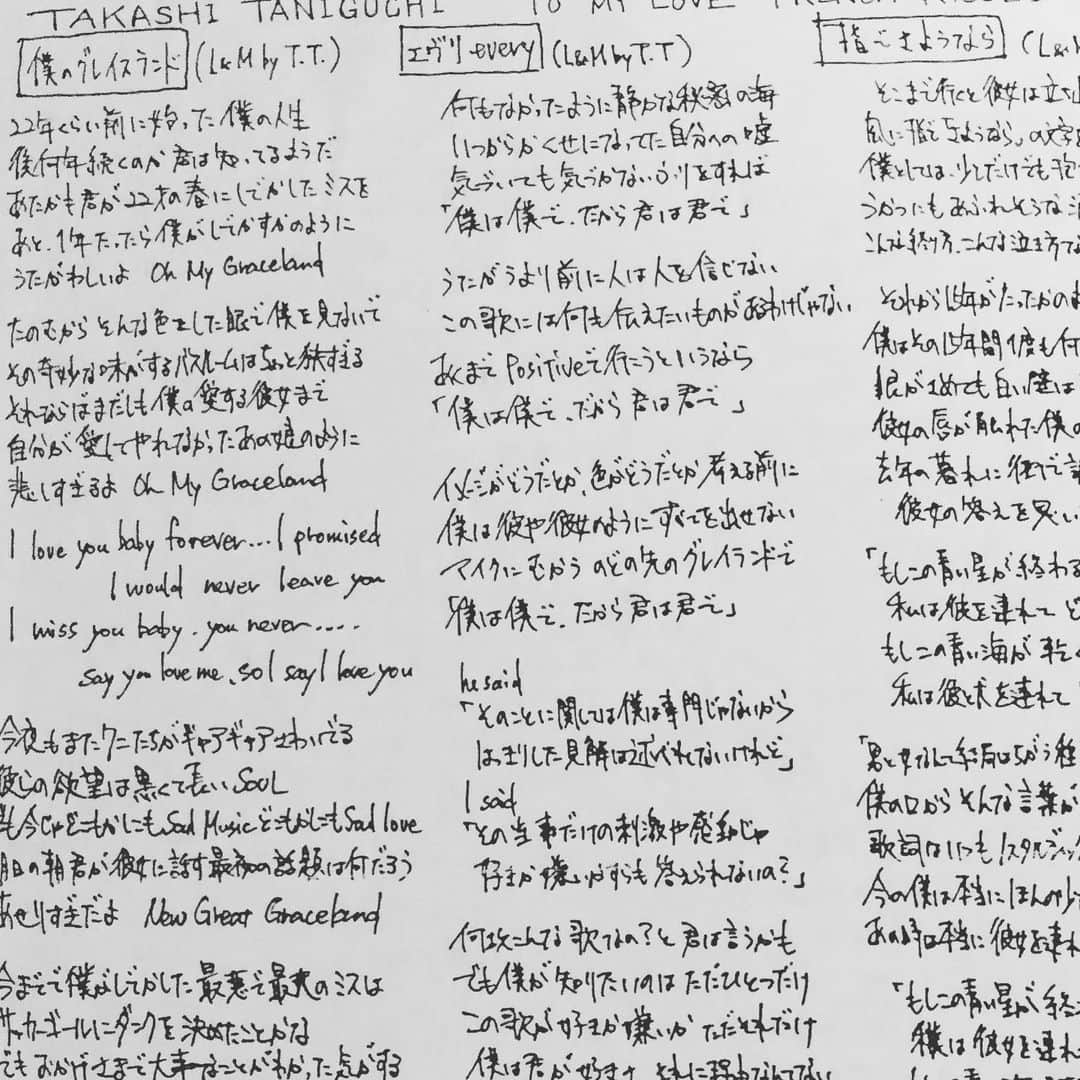 TAKASHI TANIGUCHI TO MY LOVE FRENCH
僕のグレイスランド (L&M by T.T.)
22年くらい前に始った僕の人生
後何年続くのか君は知ってるようだ
あたかも君が22才の春にしでかしたミスを
あと、1年たったら僕がしでかすかのように
うたがわしいよ Oh My Graceland
たのむから そんな色をした眼で僕を見ないで
その奇妙な味がするバスルームはちょっと狭すぎる
それならばまだしも僕の愛する彼女まで
自分が愛してやれなかったあの娘のように
悲しすぎるよ Oh My Graceland
I love you baby forever... I promised
I would never leave you
I miss you baby. you never.....
say you love me. so I say I love you
今夜もまたワニたちがギャアギャアさわいでる
彼らの欲望は黒くて長いSOUL
も今じゃどこもかしこもSad MusicどこもかしこもSad love
明日の朝君が彼女に話す最初の話題は何だろう
あせりすぎだよ New Great Graceland
今までで僕がしでかした最悪で最大のミスは
サッカーゴールにダンクを決めたことかな
でもおかげさまで大事なことがわかった気がする
エヴリ every (L&M by T.T)
何もなかったように静かな秘密の海
いつからかくせになってた自分への嘘
気づいても気づかないふりをすれば
「僕は僕で、だから君は君で」
うたがうより前に人は人を信じない
この歌には何も伝えたいものがあるわけじゃない
あくまでPositiveで行こうというなら
「僕は僕で、だから君は君で」
イメージがどうだとか、色がどうだとか考える前に
僕は彼や彼女のようにすべてを出せない
マイクにむかう のどの先のグレイランドで
「僕は僕で、だから君は君で」
he said
「そのことに関しては僕は専門じゃないから
はっきりした見解は述べれないけれど」
I said
「その当事だけの刺激や感動じゃ
好きか嫌いかすらも答えられないの?」
何故こんな歌なの?と君は言うかも
でも僕が知りたいのはただひとつだけ
この歌が好きか嫌いか ただそれだけ
僕は君が好きさ それに理由なんてない
指でさようなら (L&
そこまで行くと彼女は立ち
風に指でさようなら。の文字
僕としては、少しだけでも
うかつにもあふれそうな
こんな終り方、こんな泣き方
それから15年がたったかの
僕はその15年間1度も何
眼がさめても白い壁は
彼女の唇が触れた僕の
去年の暮れに
彼女の答えを思い
「もしこの青い星が終わる
私は彼を連れて
もしこの青い海が乾く
私は彼と犬を連れて
「男と女なんて結局はちがう種
僕の口からそんな言葉が
歌詞はいつもノスタルジック
今の僕は本当にほんの少
あの時は本当に彼女を連れ
「もしこの青い星が終
僕は彼女を連れ